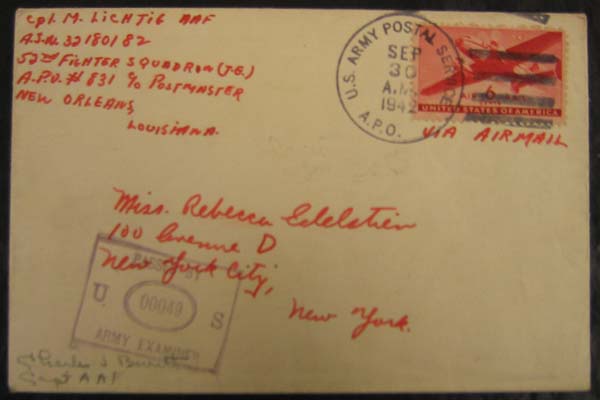 Cpl. M. LICHTIG AAF
A.S.N. 32180182
52nd FIGHTER SQUADRON (T.E.)
A.P.O. # 831 c/o POSTMASTER
NEW ORLEANS,
LOUISIANA.
U.S. ARMY POSTAL SERVICE
SEP
30
A.M.
1942
A.P.O.
6¢
UNITED STATES OF AMERICA
VIA AIRMAIL
Miss. Rebecca Edelstien
100 Avenue D
New York City,
New York.
PASSED BY
U 00049 S
ARMY EXAMINER
Charles J
Capt AAF